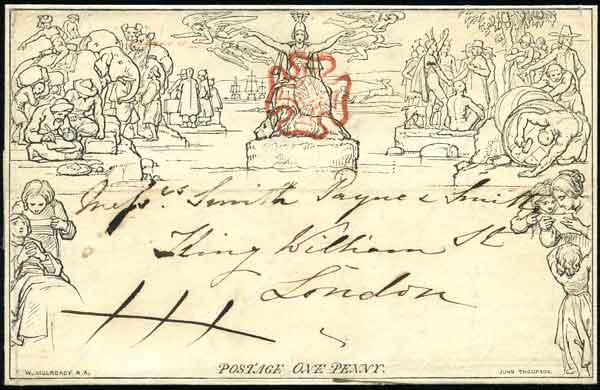 Messrs. Smith Payne & Smith
King William St
London
POSTAGE ONE PENNY.
W. MULREADY. R.A.
JOHN THOMPSON.